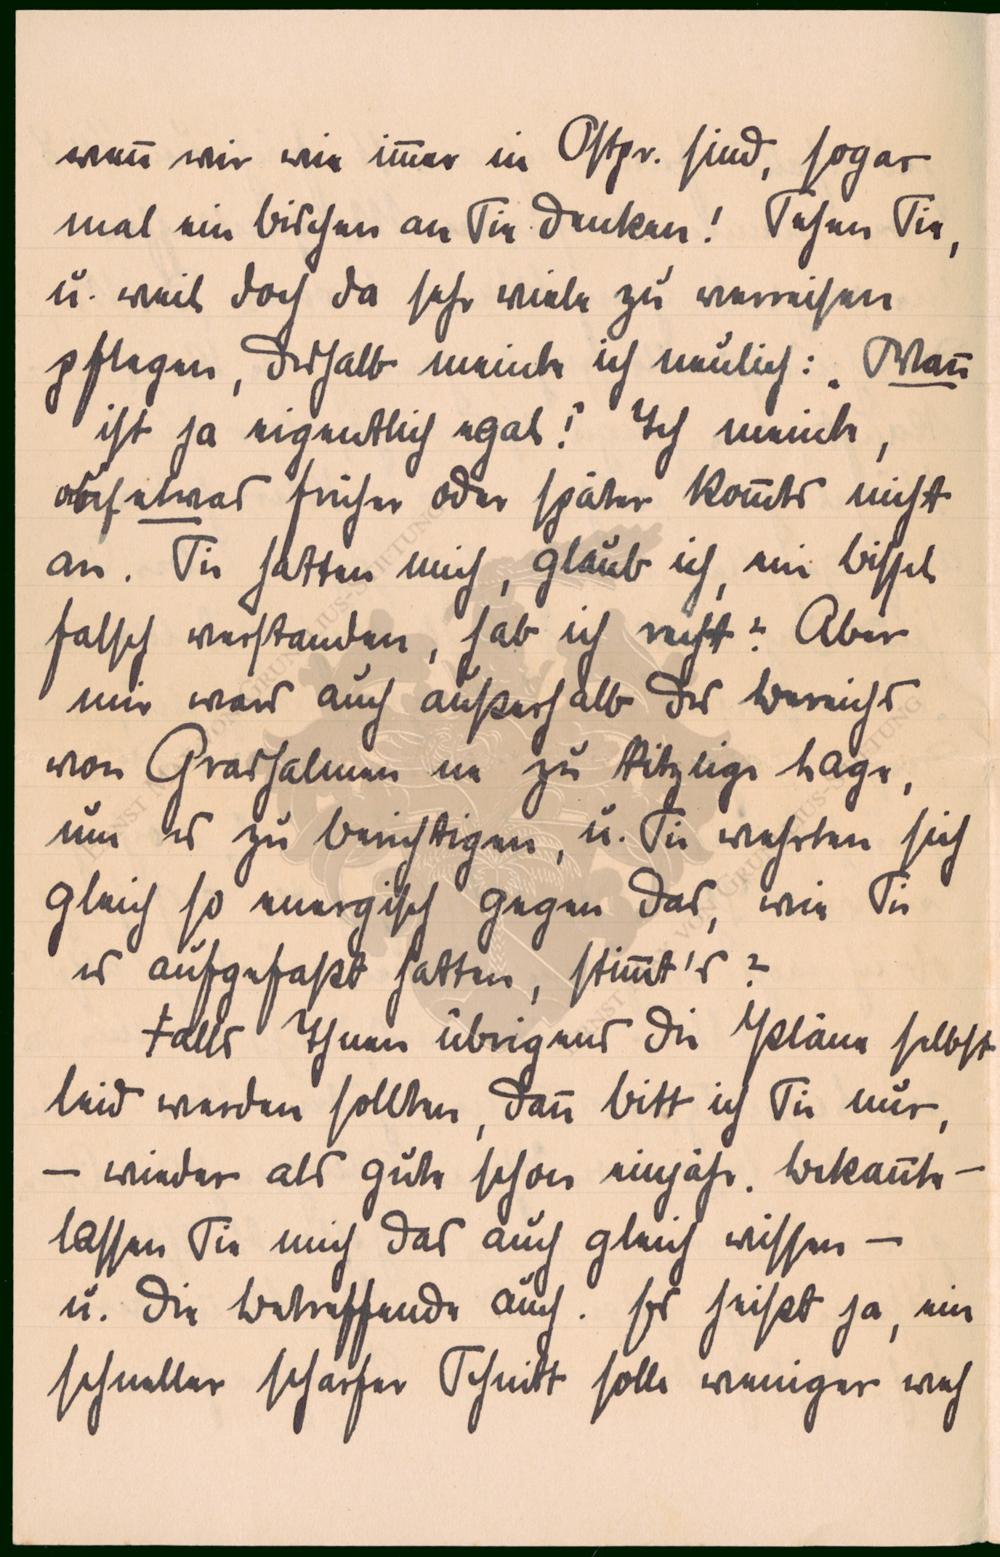 wen̄ wir wie im̄er in Ostpr. sind, sogar
mal ein bischen an Sie denken! Sehen Sie,
u. weil doch da sehr viele zu verreisen
pflegen, deshalb meinte ich neulich: „Wan̄
ist ja eigentlich egal!" Ich meinte,
obs etwas früher oder später kom̄ts nicht
an. Sie hatten mich, glaub ich, ein bissel
falsch verstanden, hab ich recht? Aber
mir wars auch außerhalb des Bereichs
von Grashalmen ne zu kitzlige Lage,
um es zu berichtigen, u. Sie wehrten sich
gleich so energisch gegen das, wie Sie
es aufgefaßt hatten, stim̄t's?
Falls Ihnen übrigens die Pläne selbst
leid werden sollten, dan̄ bitt ich Sie nur,
– wieder als gute schon einjähr. Bekan̄te –
lassen Sie mich das auch gleich wissen –
u. die Betreffende auch. Es heißt ja, ein
schneller scharfer Schnitt solle weniger weh